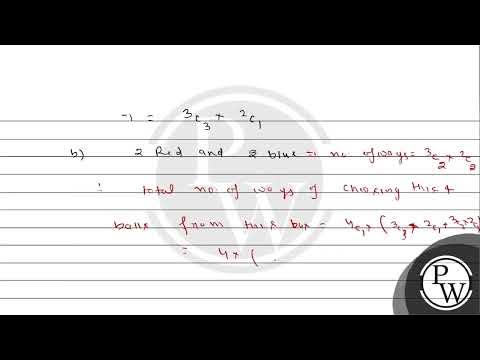 ⇒ = ³C₃ × ²C₁
b) 2 Red and 2 blue ⇒ no. of ways = ³C₂ × ²C₂
∴ total no. of ways of choosing this 4
balls from this box = ⁴C₁ × (³C₃ × ²C₁ + ³C₂ × ²C₂
= 4 × (
PW
PW